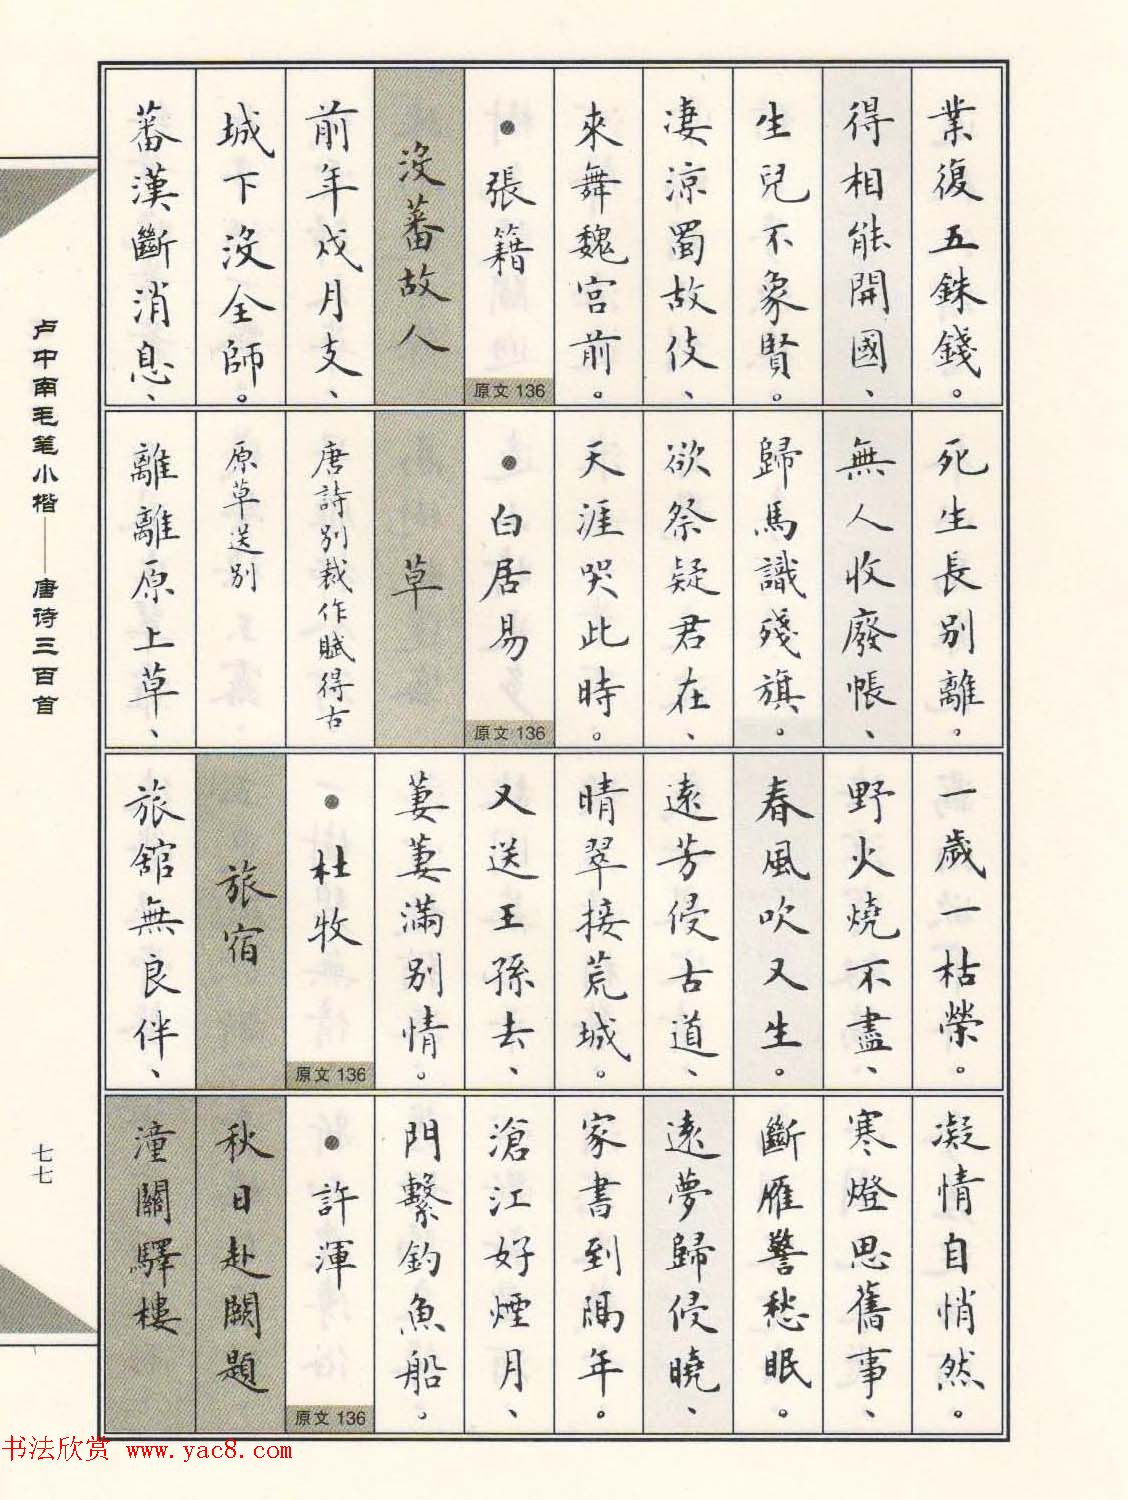 業復五銖錢。
得相能開國、
生兒不象賢。
凄涼蜀故伎、
來舞魏宮前。
●張籍
原文 136
沒蕃故人
前年戍月支、
城下沒全師。
蕃漢斷消息、
死生長別離。
無人收廢帳、
歸馬識殘旗。
欲祭疑君在、
天涯哭此時。
●白居易
原文 136
草
唐詩別裁作賦得古
原草送別
離離原上草、
一歲一枯榮。
野火燒不盡、
春風吹又生。
遠芳侵古道、
晴翠接荒城。
又送王孫去、
萋萋滿別情。
●杜牧
原文 136
旅宿
旅舘無良伴、
凝情自悄然。
寒燈思舊事、
斷雁警愁眠。
遠夢歸侵曉、
家書到隔年。
滄江好煙月、
門繫釣魚船。
●許渾
原文 136
秋日赴闕題
潼關驛樓
卢中南毛笔小楷——唐诗三百首
七七
书法欣赏 www.yac8.com